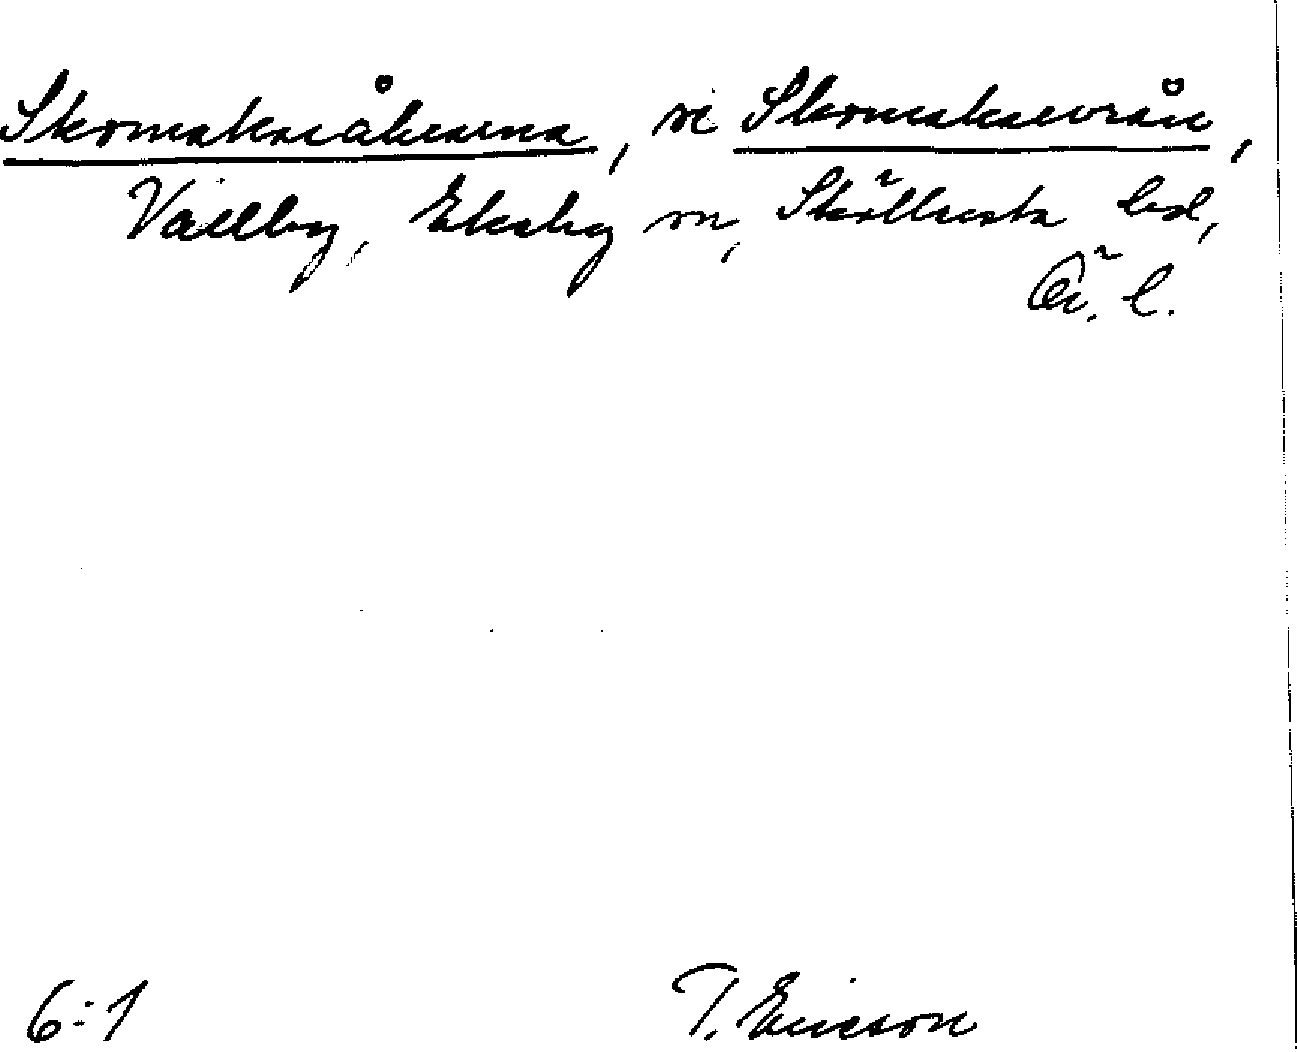 Skomakaråkrarna, se Skomakarvrån,
Vallby, Ekeby sn, Sköllersta hd,
Ör. l.
6:1 T. Ericson